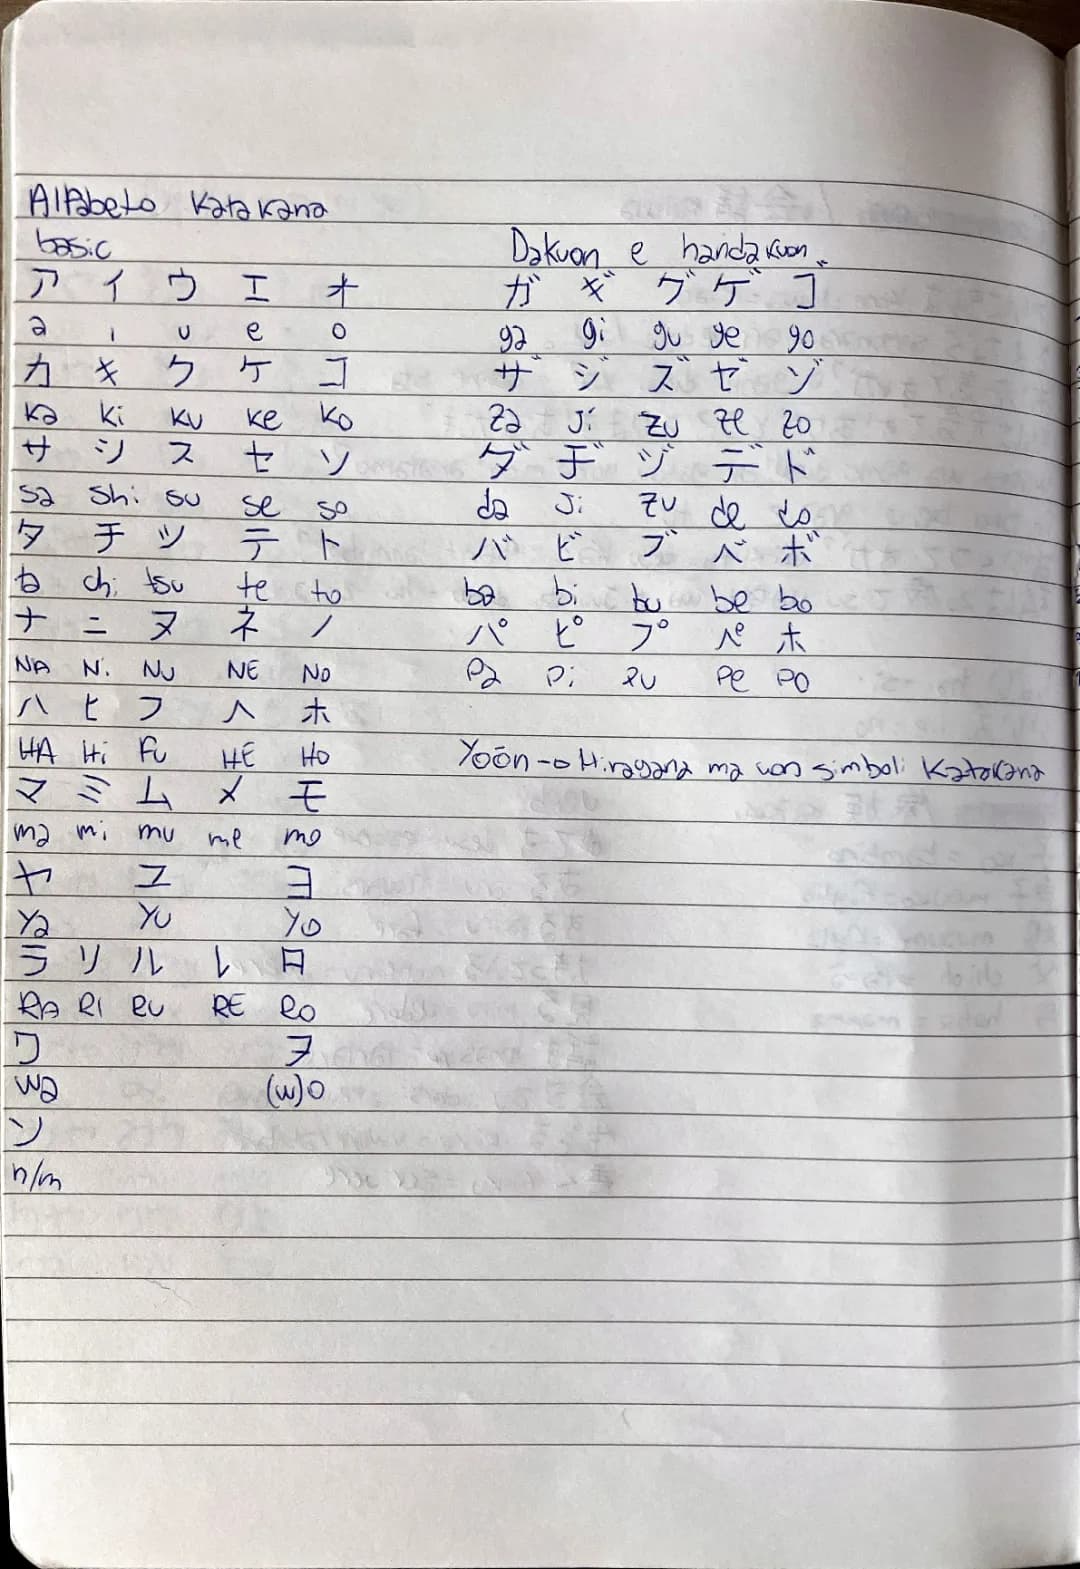 Alfabeto Katakana
basic
ア イ ウ エ オ
a i u e o
カ キ ク ケ コ
ka ki ku ke ko
サ シ ス セ ソ
sa shi su se so
タ チ ツ テ ト
ta chi tsu te to
ナ ニ ヌ ネ ノ
NA Ni NU NE NO
ハ ヒ フ ヘ ホ
HA Hi Fu HE HO
マ ミ ム メ モ
ma mi mu me mo
ヤ ユ ヨ
Ya YU YO
ラ リ ル レ ロ
RA RI RU RE RO
ワ ヲ
wa (w)o
ン
n/m
Dakuon e handakuon
ガ ギ グ ゲ ゴ
ga gi gu ge go
ザ ジ ズ ゼ ゾ
za Ji zu ze zo
ダ ヂ ヅ デ ド
da Ji zu de do
バ ビ ブ ベ ボ
ba bi bu be bo
パ ピ プ ペ ホ
Pa Pi PU Pe PO
Yoōn → Hiragana ma con simboli Katakana